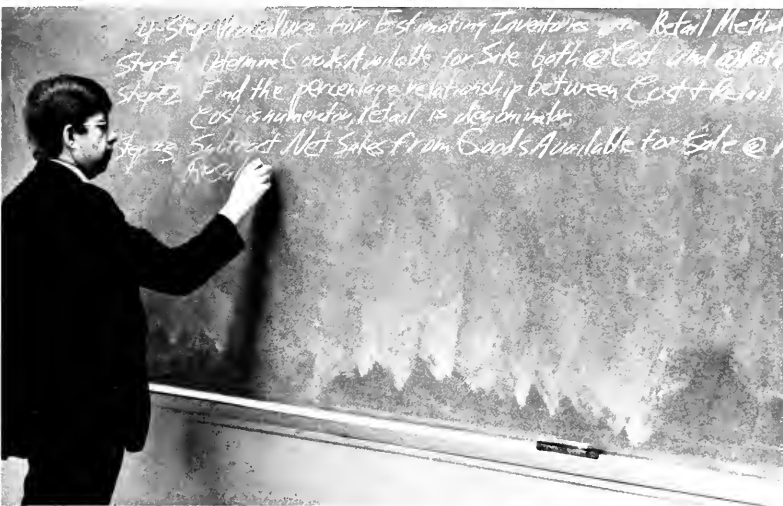 4-Step Procedure for Estimating Inventories Retail Method
Step#1 Determine Goods Available for Sale both @ Cost and @ Retail
Step#2 Find the percentage relationship between Cost & Retail
Cost is numerator retail is denominator
Step #3 Subtract Net Sales from Goods Available for Sale @